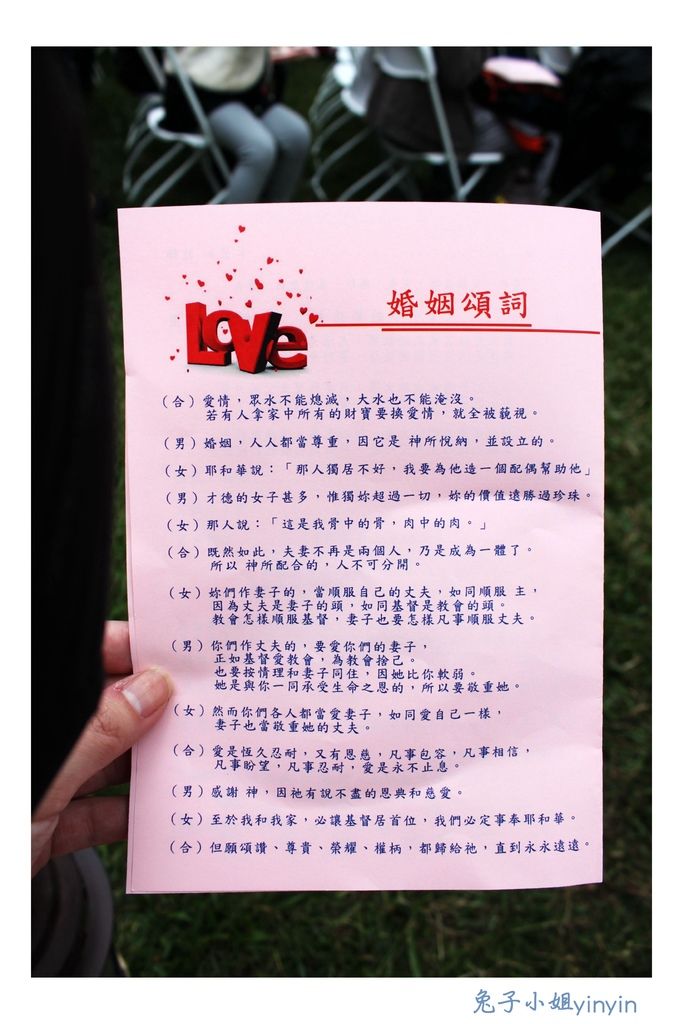 Love
婚姻頌詞
（合）愛情，眾水不能熄滅，大水也不能淹沒。
若有人拿家中所有的財寶要換愛情，就全被藐視。
（男）婚姻，人人都當尊重，因它是 神所悅納，並設立的。
（女）耶和華說：「那人獨居不好，我要為他造一個配偶幫助他」
（男）才德的女子甚多，惟獨妳超過一切，妳的價值遠勝過珍珠。
（女）那人說：「這是我骨中的骨，肉中的肉。」
（合）既然如此，夫妻不再是兩個人，乃是成為一體了。
所以 神所配合的，人不可分開。
（女）妳們作妻子的，當順服自己的丈夫，如同順服 主，
因為丈夫是妻子的頭，如同基督是教會的頭。
教會怎樣順服基督，妻子也要怎樣凡事順服丈夫。
（男）你們作丈夫的，要愛你們的妻子，
正如基督愛教會，為教會捨己。
也要按情理和妻子同住，因她比你軟弱。
她是與你一同承受生命之恩的，所以要敬重她。
（女）然而你們各人都當愛妻子，如同愛自己一樣，
妻子也當敬重她的丈夫。
（合）愛是恆久忍耐，又有恩慈，凡事包容，凡事相信，
凡事盼望，凡事忍耐，愛是永不止息。
（男）感謝 神，因祂有說不盡的恩典和慈愛。
（女）至於我和我家，必讓基督居首位，我們必定事奉耶和華。
（合）但願頌讚、尊貴、榮耀、權柄，都歸給祂，直到永永遠遠。
兔子小姐yinyin